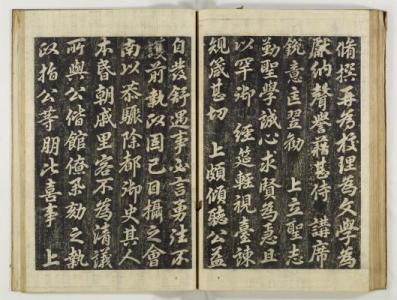 脩撰再為校理為文學為
獻納聲譽藉甚侍 講席
銳意匡翌勸 上立聖志
勤聖學誠心求賢為急且
以罕御 經筵輕視臺諫
規箴甚切 上頗傾聽公益
自發舒遇事必言勇往不
護前執政固已目攝之會
南以恭驟除都御史其人
本昏朝戚里客不為清議
所與公偕館僚亟劾之執
政指公等朋比喜事 上